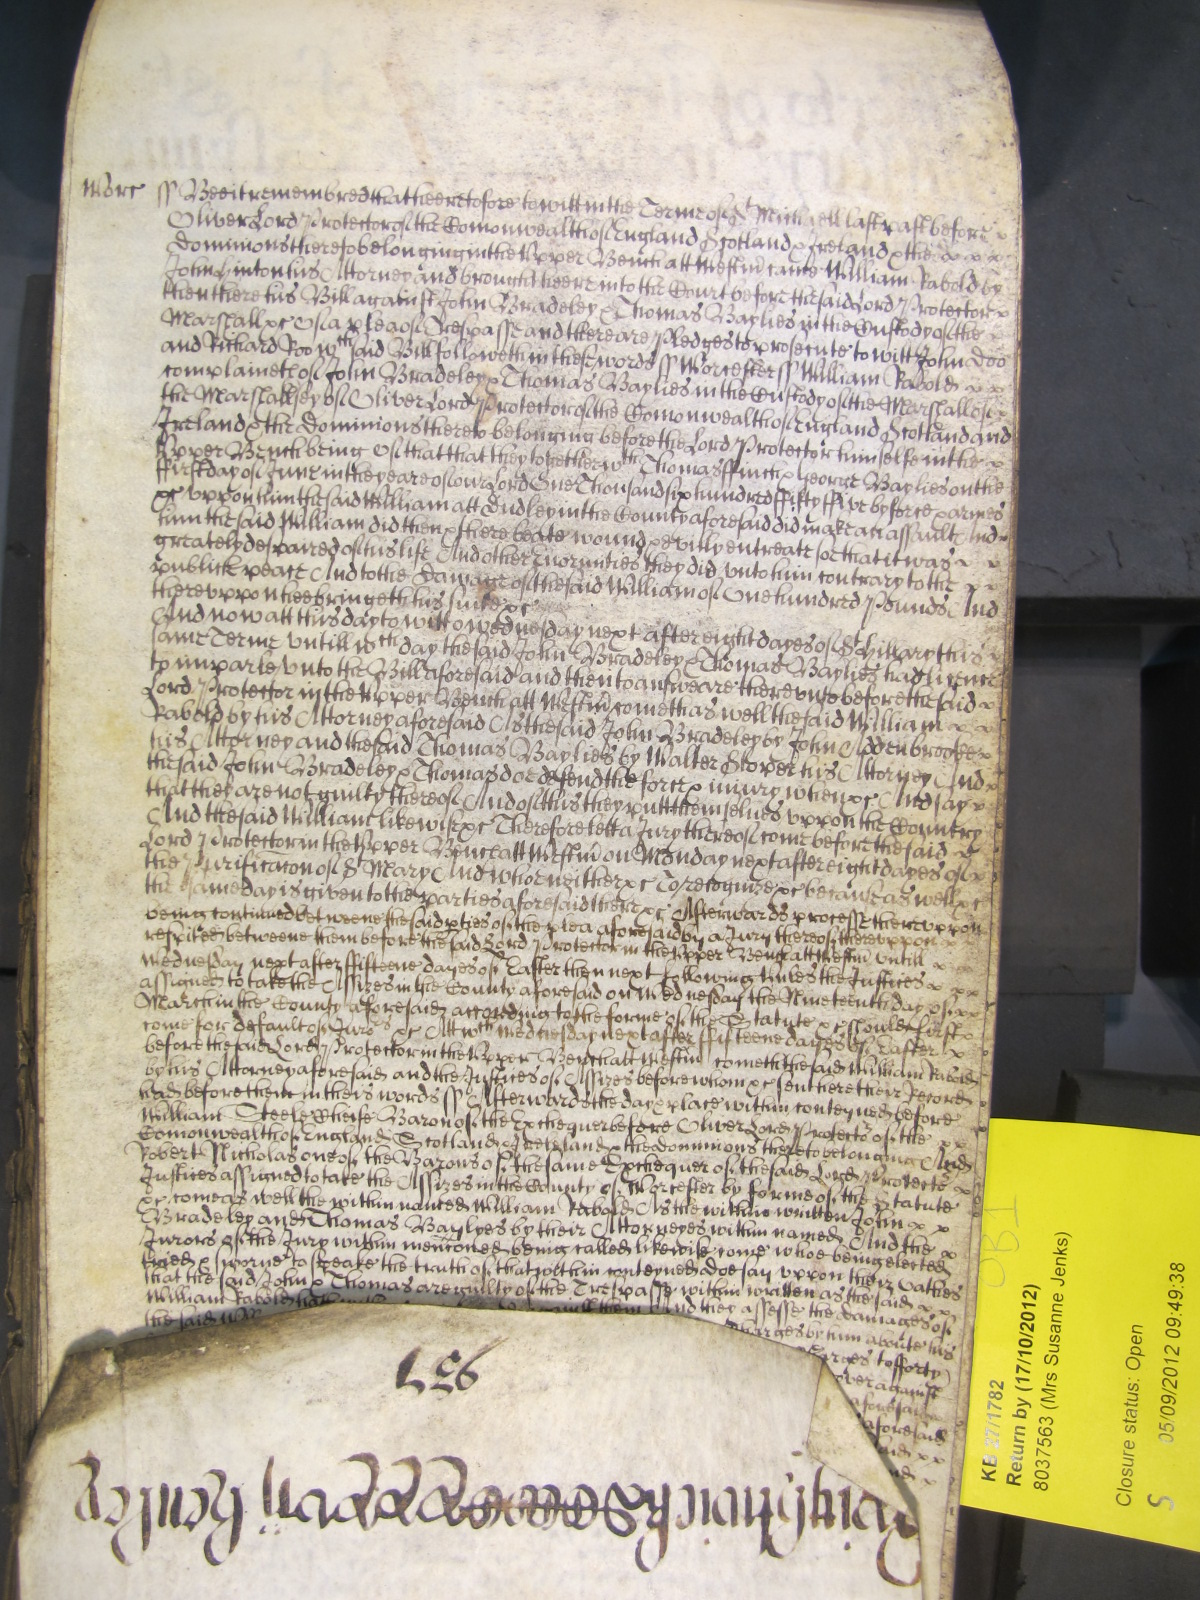 Worc ss Bee it remembred that heeretofore to witt in the Terme of St Michaell last past before
Oliver Lord Protector of the Comonwealth of England Scotland & Ireland & the
Dominions thereto belonging in the Upper Bench att Westm came William Rabold by
John Linton his Attorney and brought heere into the Court before the said Lord Protector
then there his Bill against John Bradeley & Thomas Baylies in the Custody of the
Marshall &c Of a plea of Trespasse and there are Pledges to prosecute to witt John Doo
and Richard Roo wch said Bill followeth in these words ss Worcester ss William Rabold
complaineth of John Bradeley & Thomas Baylies in the Custody of the Marshall of
the Marshallsey of Oliver Lord Protector of the Comonwealth of England Scotland and
Ireland & the Dominions thereto belonging before the Lord Protector himselfe in the
Upper Bench being Of that that they together wth Thomas ffinch & George Baylies on the
ffirst day of June in the yeare of our Lord One Thousand six hundred ffifty ffive by force & armes
&c uppon him the said William att Dudley in the County aforesaid did make an assault And
him the said William did then & there beate wound & evilly entreate so that it was
greately despaired of his life And other Enormities they did unto him contrary to the
publick peace And to the Damage of the said William of One hundred Pounds And
thereuppon hee bringeth his suite &c
And now att this day to witt Wednesday next after eight dayes of St Hillary this
same Terme untill wch day the said John Bradeley & Thomas Baylies had licence
to imparle unto the Bill aforesaid and then to answeare thereunto before the said
Lord Protector in the Upper Bench att Westm cometh as well the said William
Rabold by his Attorney aforesaid As the said John Bradeley by John Addenbrooke
his Attorney and the said Thomas Baylies by Walter Sloper his Attorney And
the said John Bradeley & Thomas doe defend the force & injury when &c And say
that they are not guilty thereof And of this they putt themselves uppon the Country
And the said William likewise &c Therefore lett a Jury thereof come before the said
Lord Protector in the Upper Bench att Westm on Monday next after eight dayes of
the Purificacon of St Mary And who neither &c To recognize &c because as well &c
the same day is given to the parties aforesaid there &c Afterwards processe thereuppon
being continued betweene the said pties of the plea aforesaid by a Jury thereof thereuppon
respited betweene them before the said Lord Protector in the Upper Bench att Westm untill
Wednesday next after ffifteene dayes of Easter then next following Unles the Justices
assigned to take the Assizes in the County aforesaid on Wednesday the Nineteenth day of
March in the County aforesaid according to the forme of the Statute &c should first
come for default of Jurors &c Att wch Wednesday next after ffifteene dayes of Easter
before the said Lord Protector in the Upper Bench att Westm cometh the said William Rabold
by his Attorney aforesaid and the Justices of Assizes before whom &c sent here their Record
had before them in theis words ss Afterwards the day & place within conteyned before
William Steele Cheife Baron of the Exchequer before Oliver Lord Protector of the
Comonwealth of England Scotland & Ireland & the dominions thereto belonging And
Robert Nicholas one of the Barons of the same Exchequer of the said Lord Protector
Justices assigned to take the Assizes in the County of Worcester by forme of the Statute
&c comes as well the within named William Rabold As the within written John
Bradeley and Thomas Baylyes by their Attorneyes within named And the
Jurors of the Jury within menconed being called likewise come whoe being elected
tryed & sworne to speake the truth of that within conteyned doe say uppon their Oathes
that the said John & Thomas are guilty of the Trespasse within written as the said
William Rabold hath against them And they assesse the damages of
the said charges by him about his
charges to fforty
over against
aforesaid
aforesaid
said
937
Henley
KB 27/1782
Return by (17/10/2012)
8037563 (Mrs Susanne Jenks)
Closure status: Open
S 05/09/2012 09:49:38
OB1